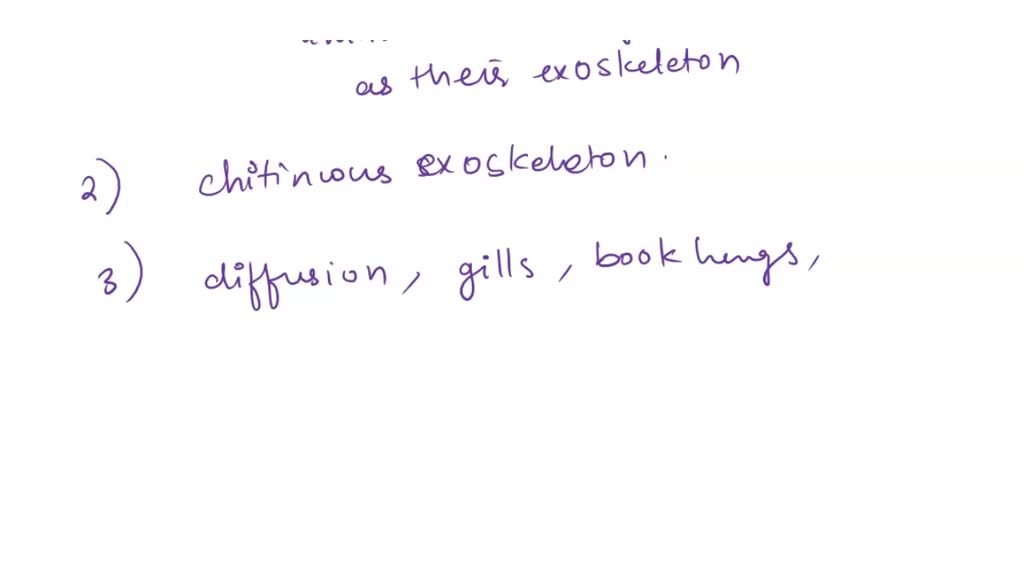 as their exoskeleton
2) chitinous exoskeleton.
3) diffusion, gills, book lungs,